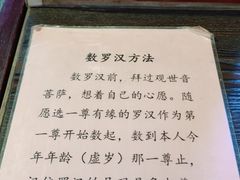 数罗汉方法
数罗汉前，拜过观世音
菩萨，想着自己的心愿。随
愿选一尊有缘的罗汉作为第
一尊开始数起，数到本人今
年年龄（虚岁）那一尊止，